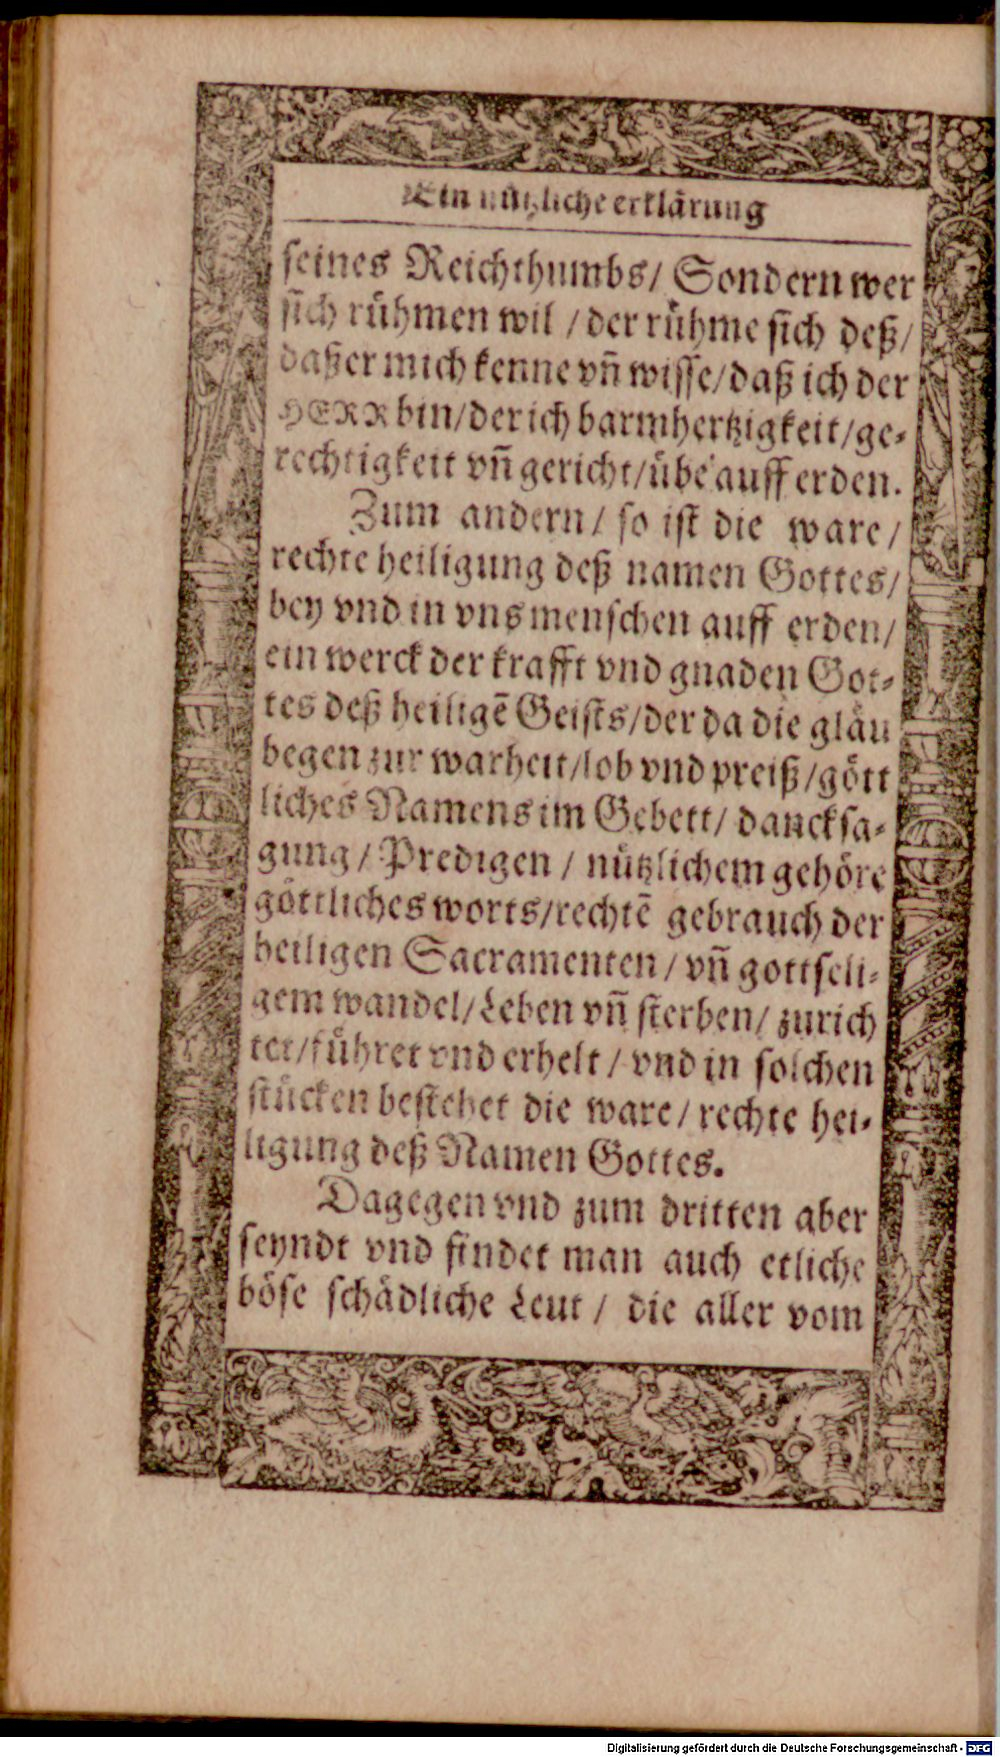 Ein nützliche erklärung
seines Reichthumbs/ Sondern wer
sich rühmen wil / der rühme sich deß/
daß er mich kenne vñ wisse/daß ich der
HERR bin/der ich barmhertzigkeit/ge-
rechtigkeit vñ gericht/übe auff erden.
Zum andern/ so ist die ware/
rechte heiligung deß namen Gottes/
bey vnd in vns menschen auff erden/
ein werck der krafft vnd gnaden Got-
tes deß heiligẽ Geists/der da die gläu
begen zur warheit/lob vnd preiß/gött
liches Namens im Gebett/ dancksa-
gung/ Predigen / nützlichem gehöre
göttliches worts/rechtẽ gebrauch der
heiligen Sacramenten/ vñ gottseli-
gem wandel/Leben vñ sterben/ zurich
tet/führet vnd erhelt/ vnd in solchen
stücken bestehet die ware/ rechte hei-
ligung deß Namen Gottes.
Dagegen vnd zum dritten aber
seyndt vnd findet man auch etliche
böse schädliche Leut / die aller vom
Digitalisierung gefördert durch die Deutsche Forschungsgemeinschaft - DFG